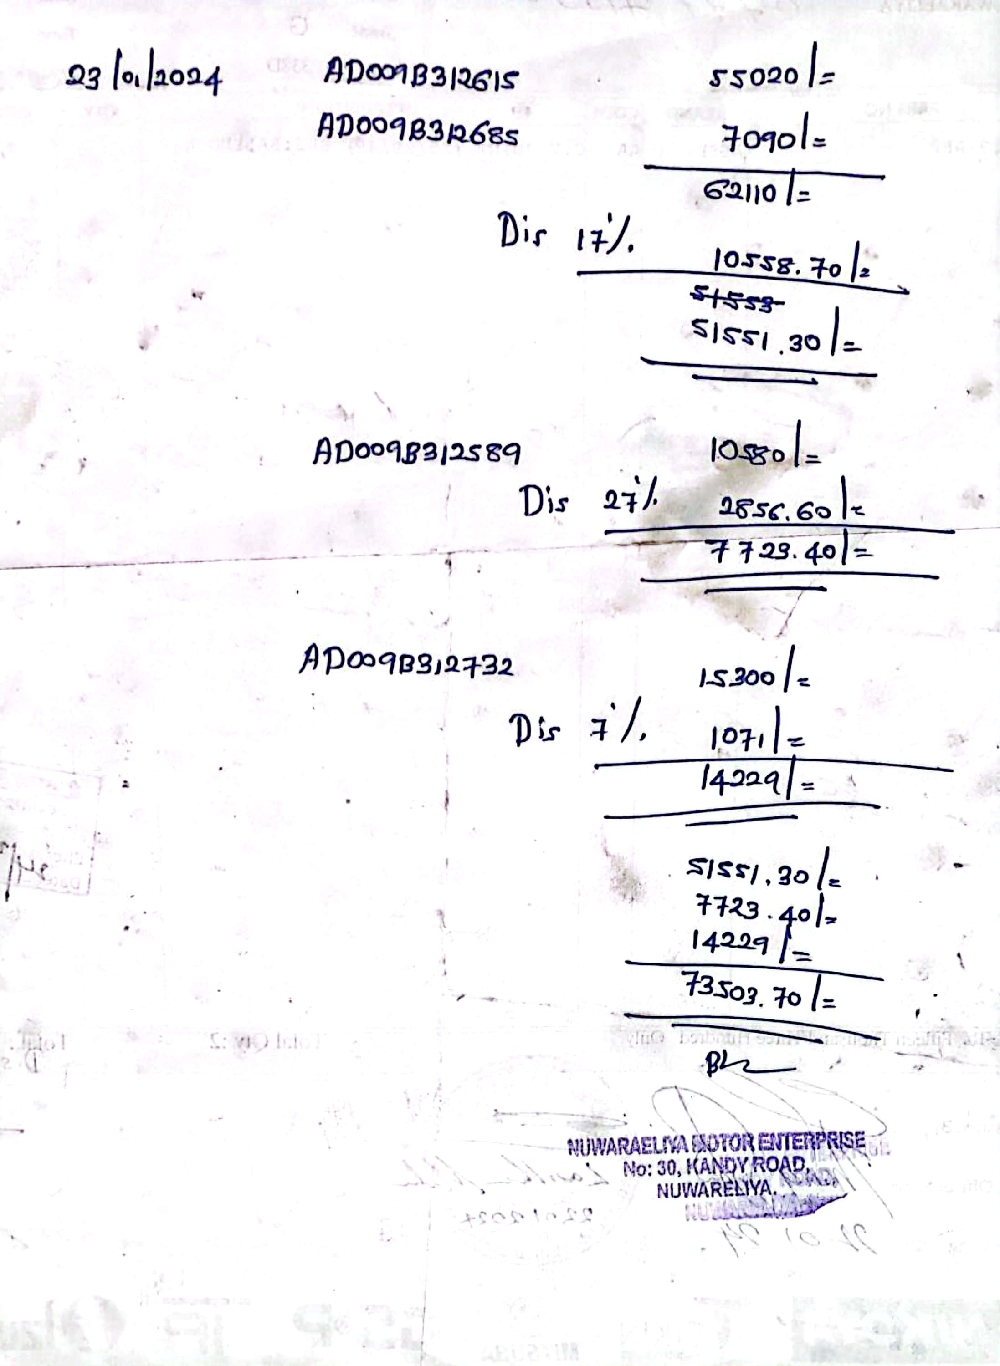 23/01/2024 AD009B312615 55020/=
AD009B312685 7090/=
62110/=
Dis 17%. 10558.70/=
51553
51551.30/=
AD009B312589 10580/=
Dis 27% 2856.60/=
7723.40/=
AD009B312732 15300/=
Dis 7%. 1071/=
14229/=
51551.30/=
7723.40/=
14229/=
73503.70/=
NUWARAELIYA MOTOR ENTERPRISE
No: 30, KANDY ROAD,
NUWARELIYA.